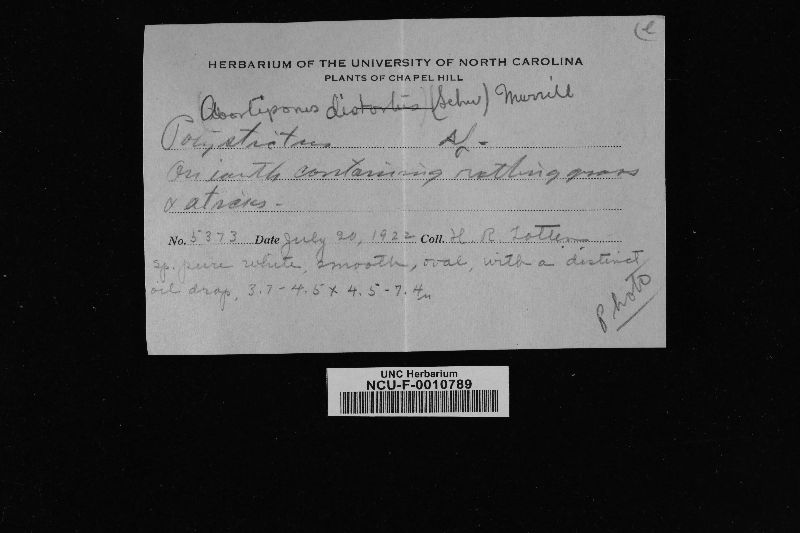 HERBARIUM OF THE UNIVERSITY OF NORTH CAROLINA
PLANTS OF CHAPEL HILL
Abortiporus distortus (Schw) Murrill
Polystictus sp.
On earth containing rotting grass
& sticks -
No. 5373 Date July 20, 1922 Coll. H R Totten
Sp. pure white, smooth, oval, with a distinct
oil drop, 3.7-4.5 x 4.5-7.4µ
Photo
UNC Herbarium
NCU-F-0010789